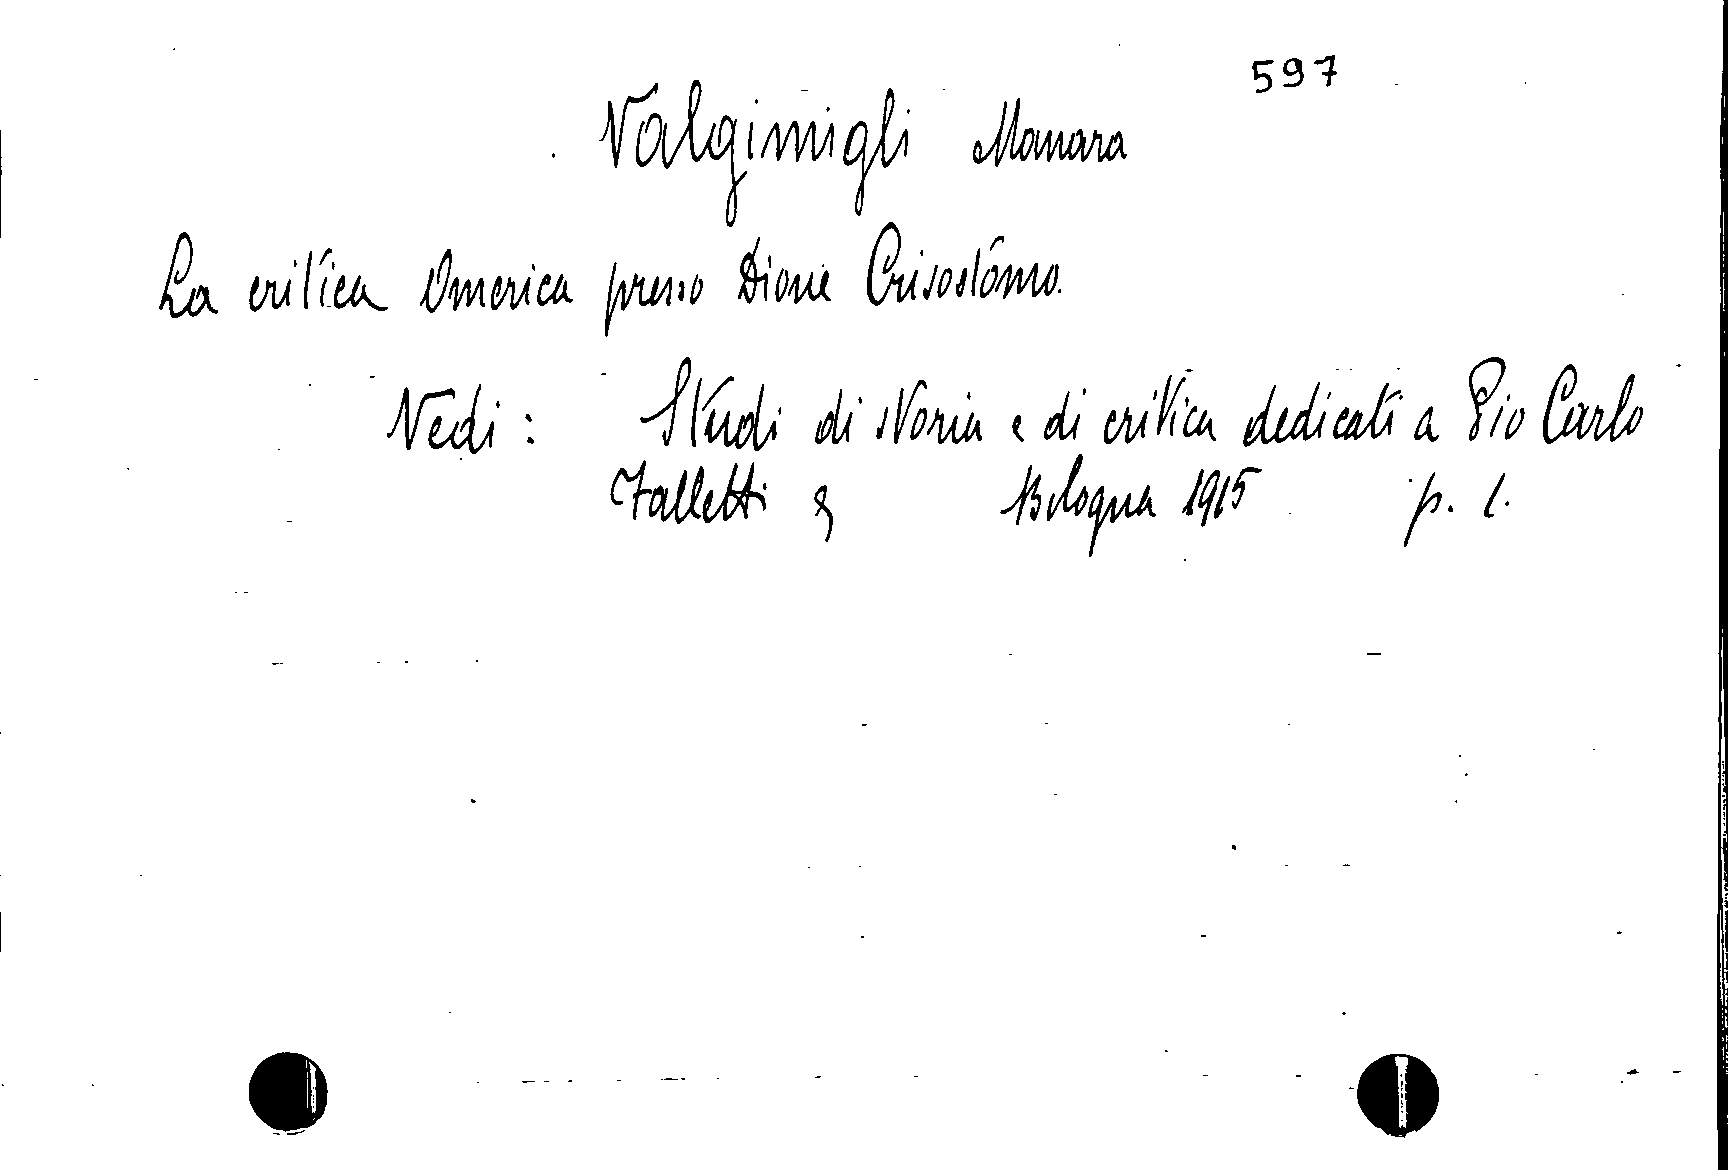 597
Valgimigli Manara
La critica Omerica presso Dione Crisostomo.
Vedi: Studi di storia e di critica dedicati a Pio Carlo
Falletti Bologna 1915 p. 1.